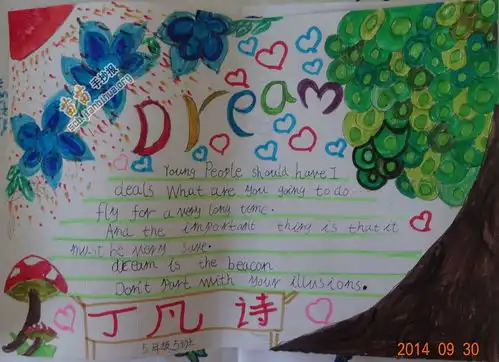 Dream
Young People should have I
deals What are you going to do
fly for a very long time.
And the important thing is that it
must be very safe.
dream is the beacon
Don't part with your illusions.
丁凡诗
5年级5班
2014 09 30